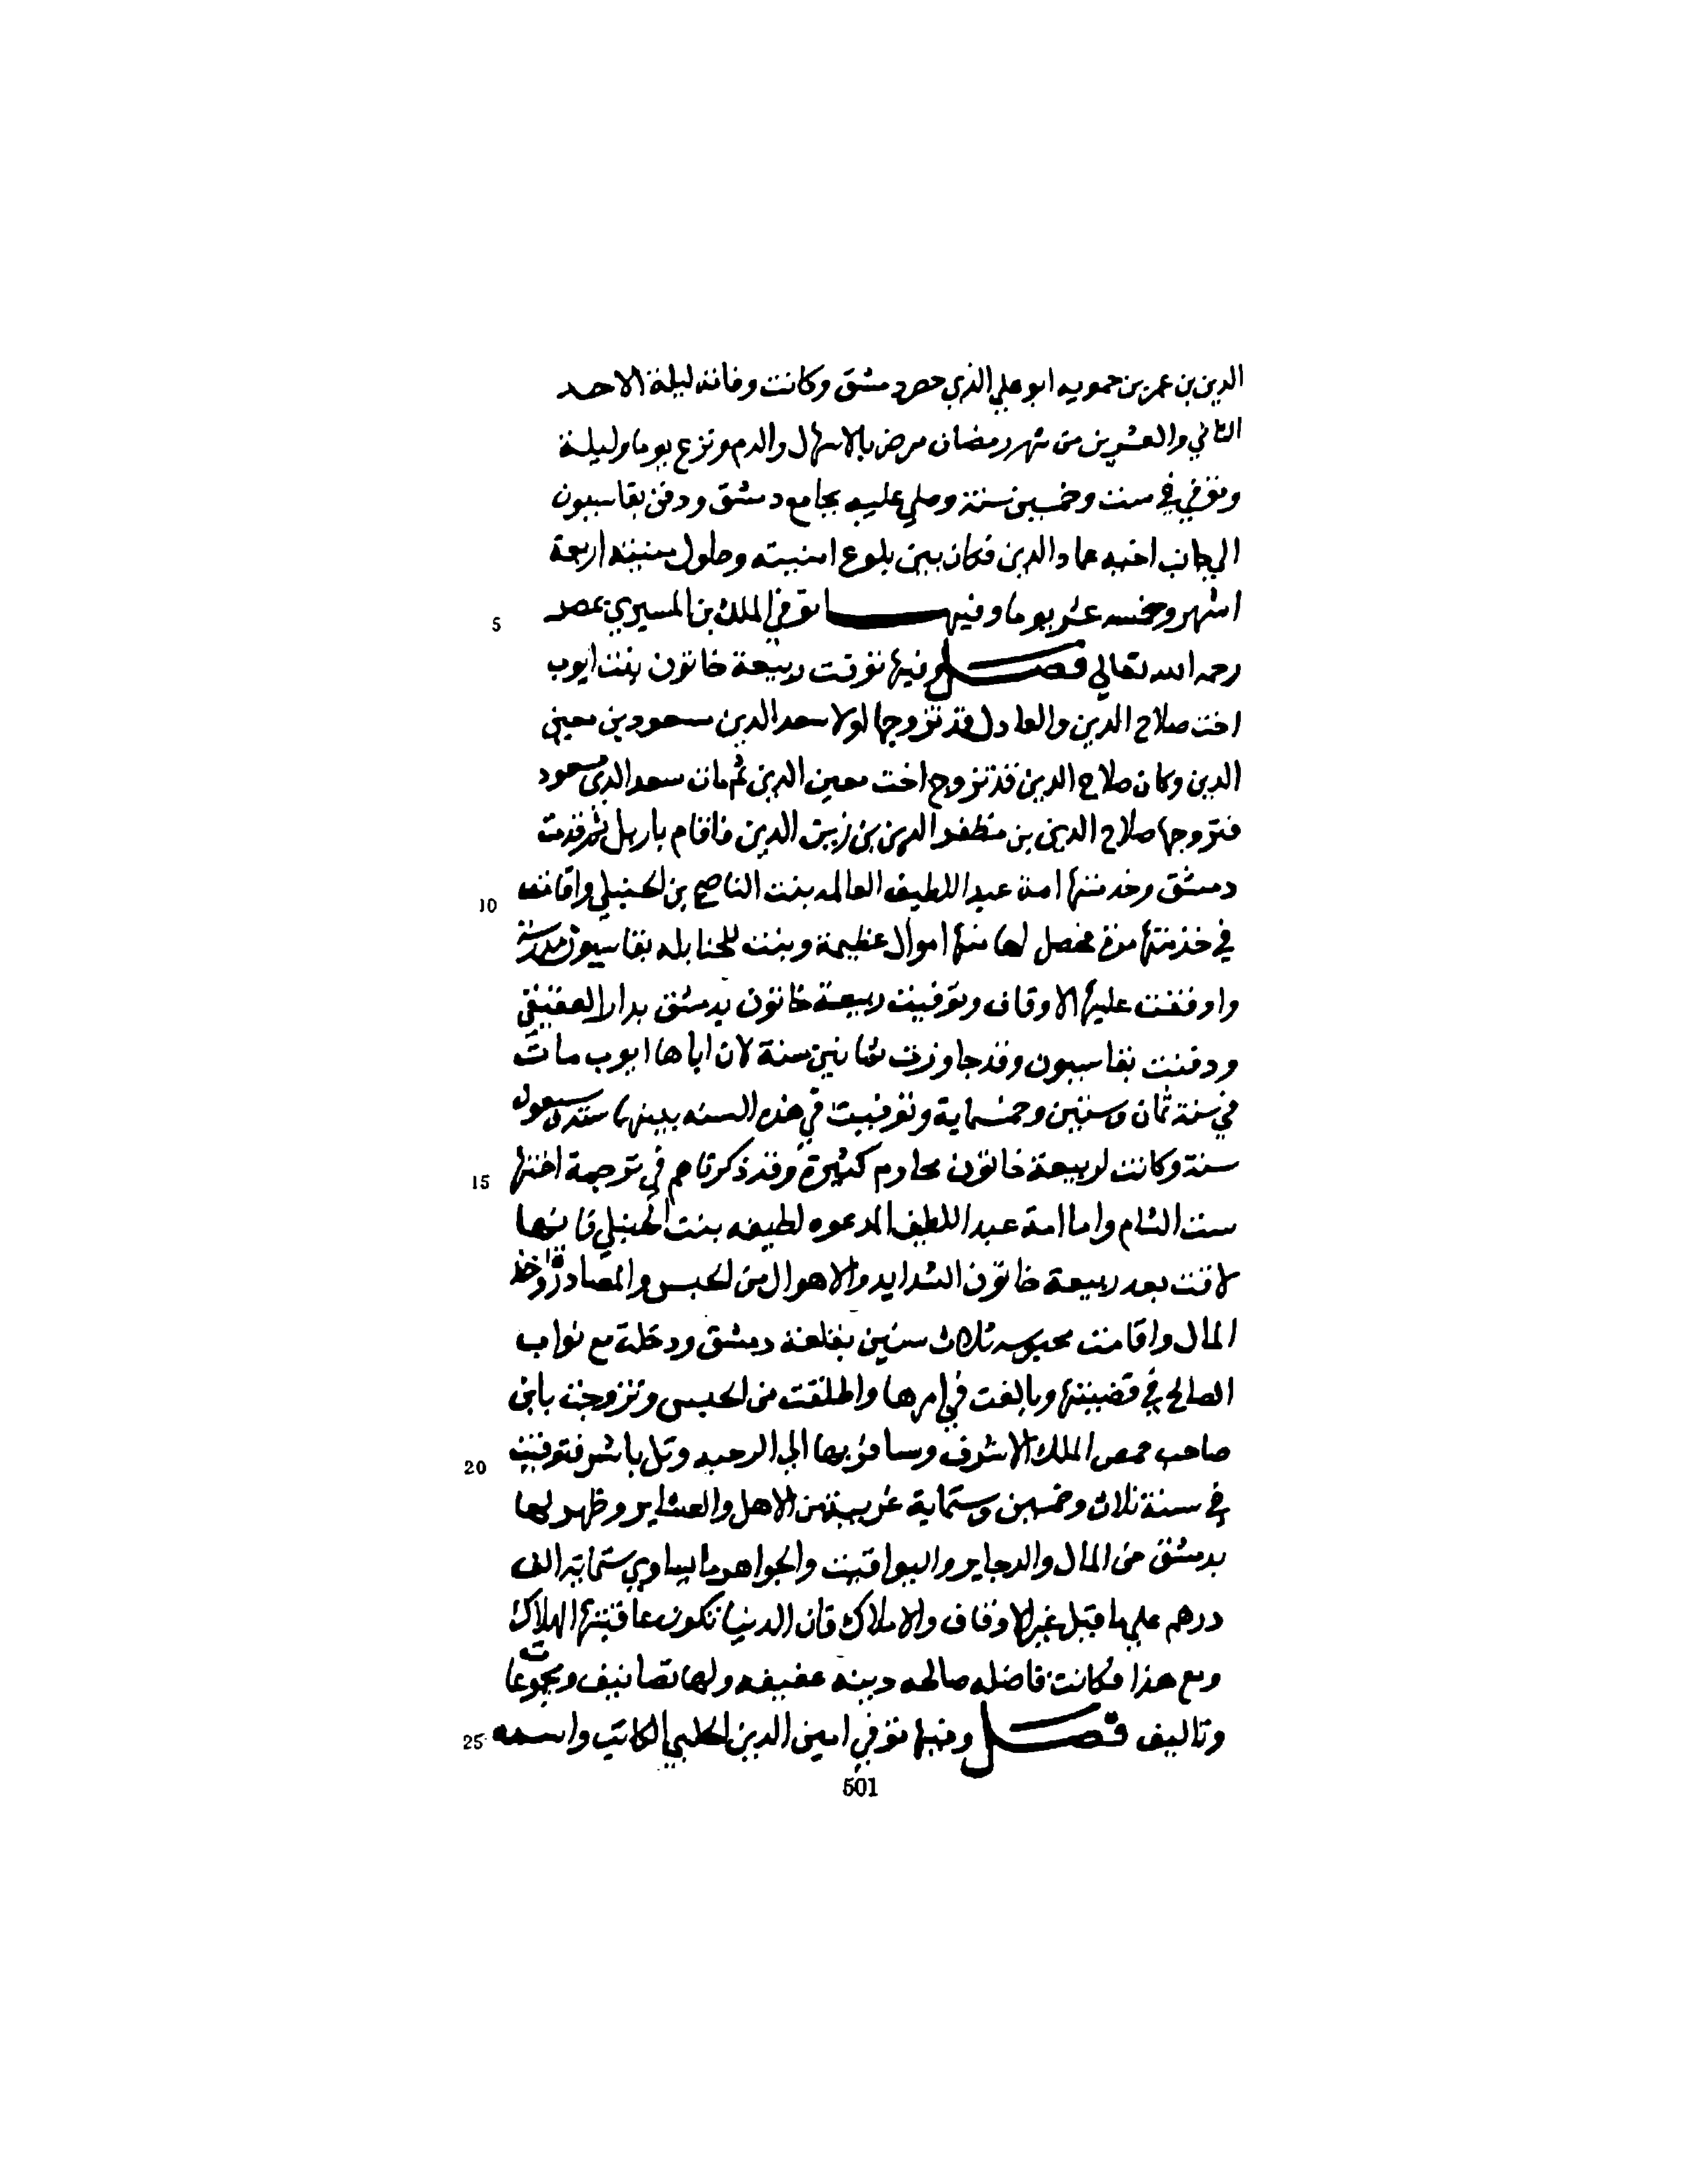 الدين بن عمر بن حمويه ابو علي الذي حصر دمشق وكانت وفاته ليلة الاحد
الثاني والعشرين من شهر رمضان مرض بالاسهال والدم ونزع يوما وليلة
وتوفي في ست وخمسين سنة وصلي عليه بجامع دمشق ودفن بقاسيون
الي جانب اخيه عماد الدين فكان بين بلوغ امنيته وحلول منيته اربعة
5 اشهر وخمسه عشر يوما وفيها توفي الملك بن المسيري بمصر
رحمه الله تعالي فصل وفيها توفت ربيعة خاتون بنت ايوب
اخت صلاح الدين والعادل قد تزوجها اولا سعد الدين مسعود بن معين
الدين وكان صلاح الدين قد تزوج اخت معين الدين ثم مات سعد الدين مسعود
فتزوجها صلاح الدين بن مظفر الدين بن زين الدين فاقام باربل ثم قدمت
10 دمشق وخدمتها امة عبد اللطيف العالمه بنت الناصح بن الحنبلي واقامت
في خدمتها مدة فحصل لها منها اموال عظيمة وبنت للحنابله بقاسيون مدرسة
واوقفت عليها الاوقاف وتوفيت ربيعة خاتون بدمشق بدار العقيقي
ودفنت بقاسيون وقد جاوزت ثمانين سنة لان اباها ايوب مات
في سنة ثمان وستين وخمسماية وتوفيت في هذه السنه بينهما
15 سنة وكانت لربيعة خاتون محارم كثيرة وقد ذكرناهم في ترجمة اختها
ست الشام واما امة عبد اللطيف المدعوه لطيفه بنت الحنبلي فانها
لاقت بعد ربيعة خاتون الشدايد والاهوال من الحبس والمصادرة واخذ
المال واقامت محبوسه ثلاث سنين بقلعة دمشق ودخلت مع نواب
الصالح في قضيتها وبالغت في امرها واطلقت من الحبس وتزوجت بابن
20 صاحب حمص الملك الاشرف وسافر بها الي الرحبه وتل باشر فتوفيت
في سنة ثلاث وخمسين وستماية غريبة من الاهل والعشاير وظهر لها
بدمشق من المال والدخاير واليواقيت والجواهر ما يساوي ستماية الف
درهم علي ما قيل غير الاوقاف والاملاك فان الدنيا تكون عاقبتها الهلاك
ومع هذا فكانت فاضله صالحه دينه عفيفه ولها تصانيف ومجموعات
25 وتاليف فصل وفيها توفي امين الدين الحلبي الكاتب واسمه
501